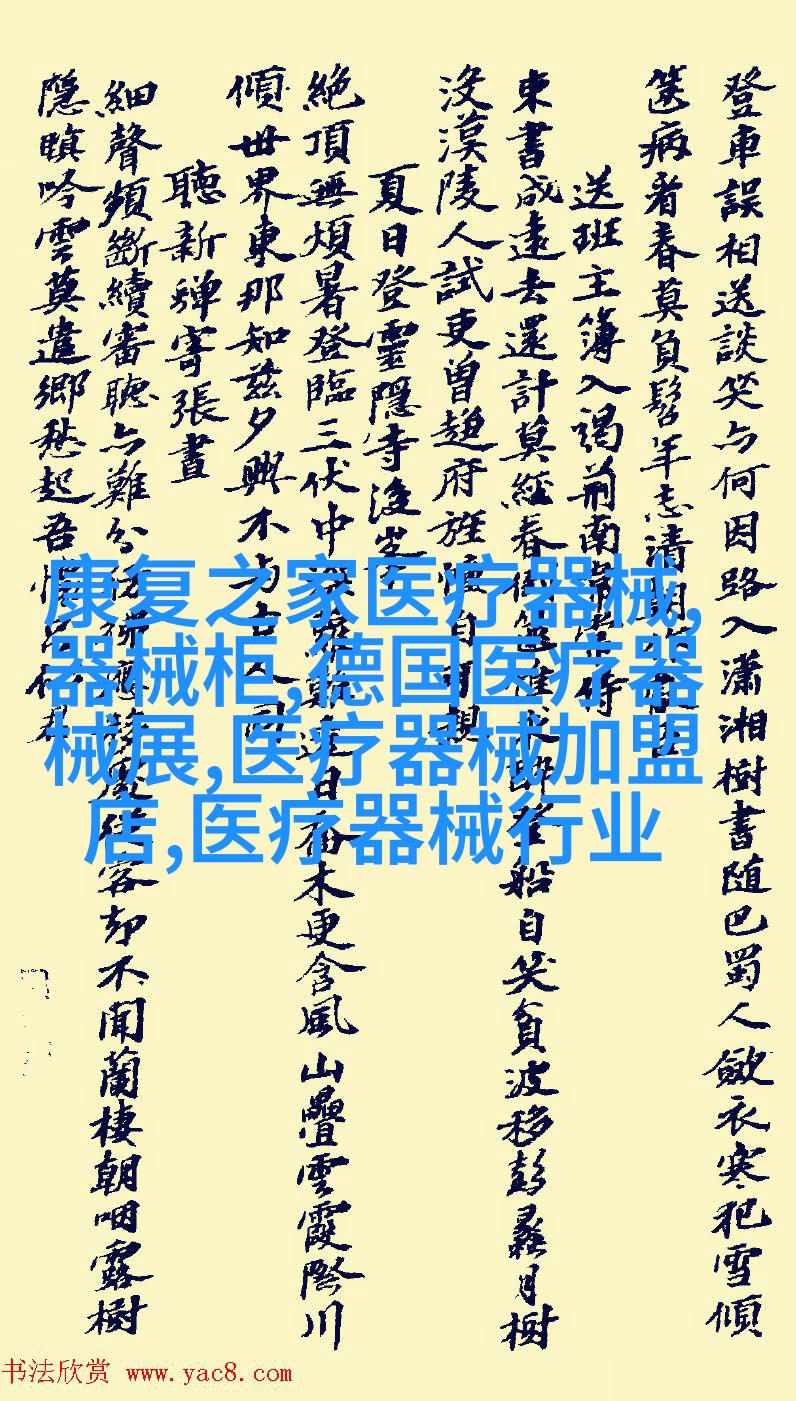 登車誤相送談笑与何因路入瀟湘樹書随巴蜀人歛衣寒犯雪傾
篋病看春莫負髫年志清朝
送班主簿入謁荊南常侍
束書成遠去還計莫經春倒篋唯求登船自笑貧波移彭蠡月樹
没漢陵人試吏曾趨府旌幢自可親
夏日登靈隱寺後峯
絕頂無煩暑登臨三伏中深透日喬木更含風山疊雲霞際川
傾世界東那知茲夕興不与古人同
聽新蟬寄張晝
細聲頻斷續審聽亦難分彷彿移處從容却不聞蘭棲朝咽露樹
隱暝吟雲莫遣鄉愁起吾懷君
康复之家医疗器械,
器械柜,德国医疗器
械展,医疗器械加盟
店,医疗器械行业
书法欣赏 www.yac8.com